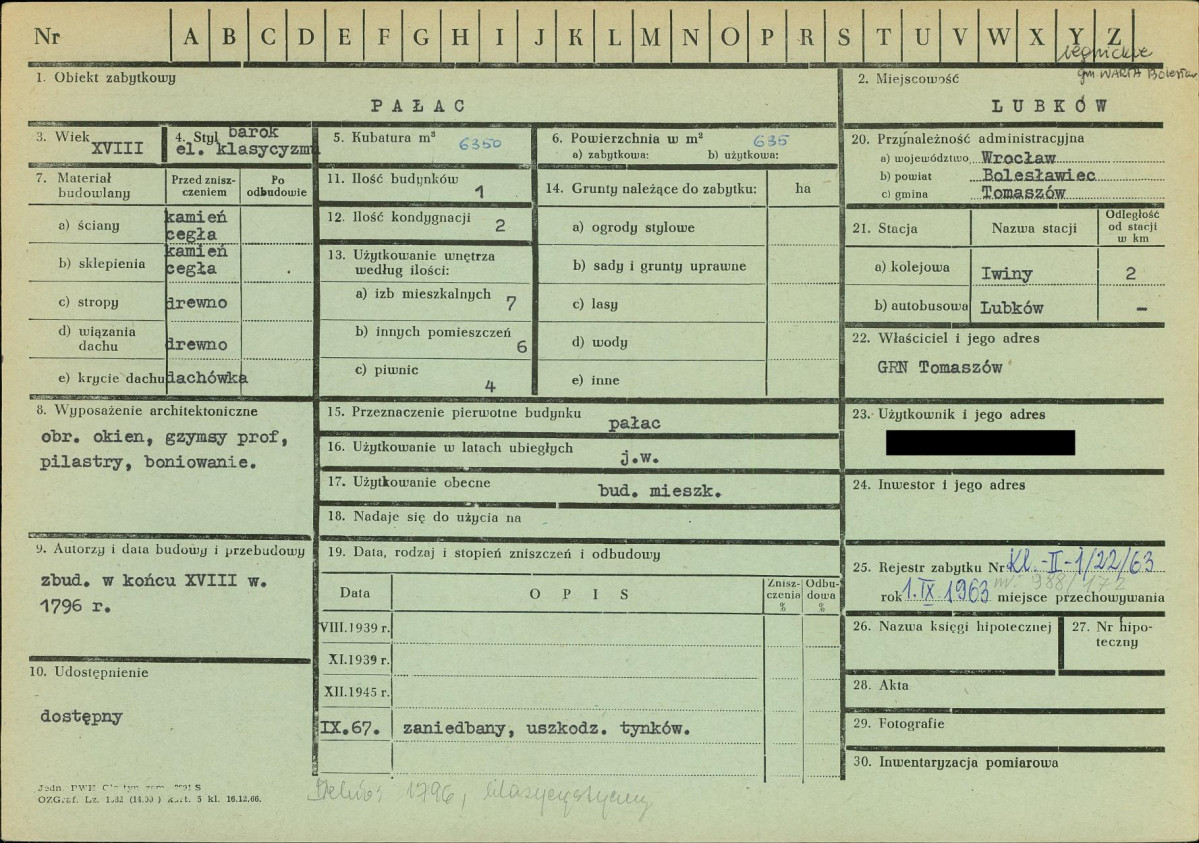 Nr A B C D E F G H I J K L M N O P R S T U V W X Y Z
legnickie
gm WARTA Bolesław
1. Obiekt zabytkowy
PAŁAC
2. Miejscowość
LUBKÓW
3. Wiek
XVIII
4. Styl barok
el. klasycyzmu
5. Kubatura m³ 6350
6. Powierzchnia w m² 635
a) zabytkowa: b) użytkowa:
7. Materiał budowlany
Przed znisz-
czeniem
Po
odbudowie
a) ściany kamień
cegła
b) sklepienia kamień
cegła
c) stropy drewno
d) wiązania
dachu drewno
e) krycie dachu dachówka
8. Wyposażenie architektoniczne
obr. okien, gzymsy prof,
pilastry, boniowanie.
9. Autorzy i data budowy i przebudowy
zbud. w końcu XVIII w.
1796 r.
10. Udostępnienie
dostępny
11. Ilość budynków
1
12. Ilość kondygnacji 2
13. Użytkowanie wnętrza
według ilości:
a) izb mieszkalnych 7
b) innych pomieszczeń
6
c) piwnic
4
14. Grunty należące do zabytku: ha
a) ogrody stylowe
b) sady i grunty uprawne
c) lasy
d) wody
e) inne
15. Przeznaczenie pierwotne budynku
pałac
16. Użytkowanie w latach ubiegłych
j.w.
17. Użytkowanie obecne
bud. mieszk.
18. Nadaje się do użycia na
19. Data, rodzaj i stopień zniszczeń i odbudowy
Data OPIS
Znisz-
czenia
%
Odbu-
dowa
%
VIII.1939 r.
XI.1939 r.
XII.1945 r.
IX.67. zaniedbany, uszkodz. tynków.
20. Przynależność administracyjna
a) województwo Wrocław
b) powiat Bolesławiec
c) gmina Tomaszów
21. Stacja Nazwa stacji
Odległość
od stacji
w km
a) kolejowa Iwiny 2
b) autobusowa Lubków -
22. Właściciel i jego adres
GRN Tomaszów
23. Użytkownik i jego adres
24. Inwestor i jego adres
25. Rejestr zabytku Nr Kl.-II-1/22/63
nr 988/172
rok 1.IX 1963 miejsce przechowywania
26. Nazwa księgi hipotecznej
27. Nr hipo-
teczny
28. Akta
29. Fotografie
30. Inwentaryzacja pomiarowa
OZGraf. Lz. kart. 5 kl. 16.12.66.
1796, klasycystyczny